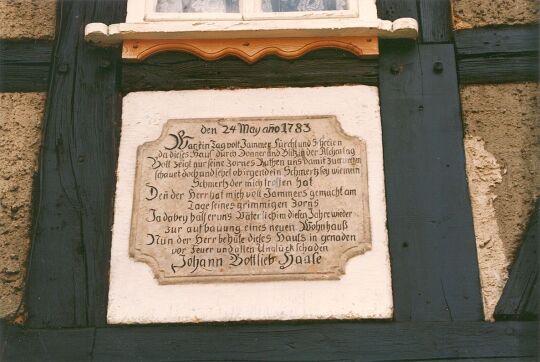 den 24 May año 1783
War ein Tag voll Jammer, Furcht und Schrecken
da dieses Hauß durch Donner und Blitz in der Asche lag
Gott zeigt nur seine Zornes Ruthen uns damit zu
schauet doch und sehet ob irgend ein Schmertz sey wie mein
Schmertz der mich troffen hat
Den der Herr hat mich voll Jammers gemacht am
Tage seines grimmigen Zorns
Ja dabey halff er uns Väterlich in diesen Jahre wieder
zur auf bauung eines neuen Wohnhauß
Nun der Herr behüte dieses Hauß in genaden
vor Feuer und allen Unglück schaden
Johann Gottlieb Haase